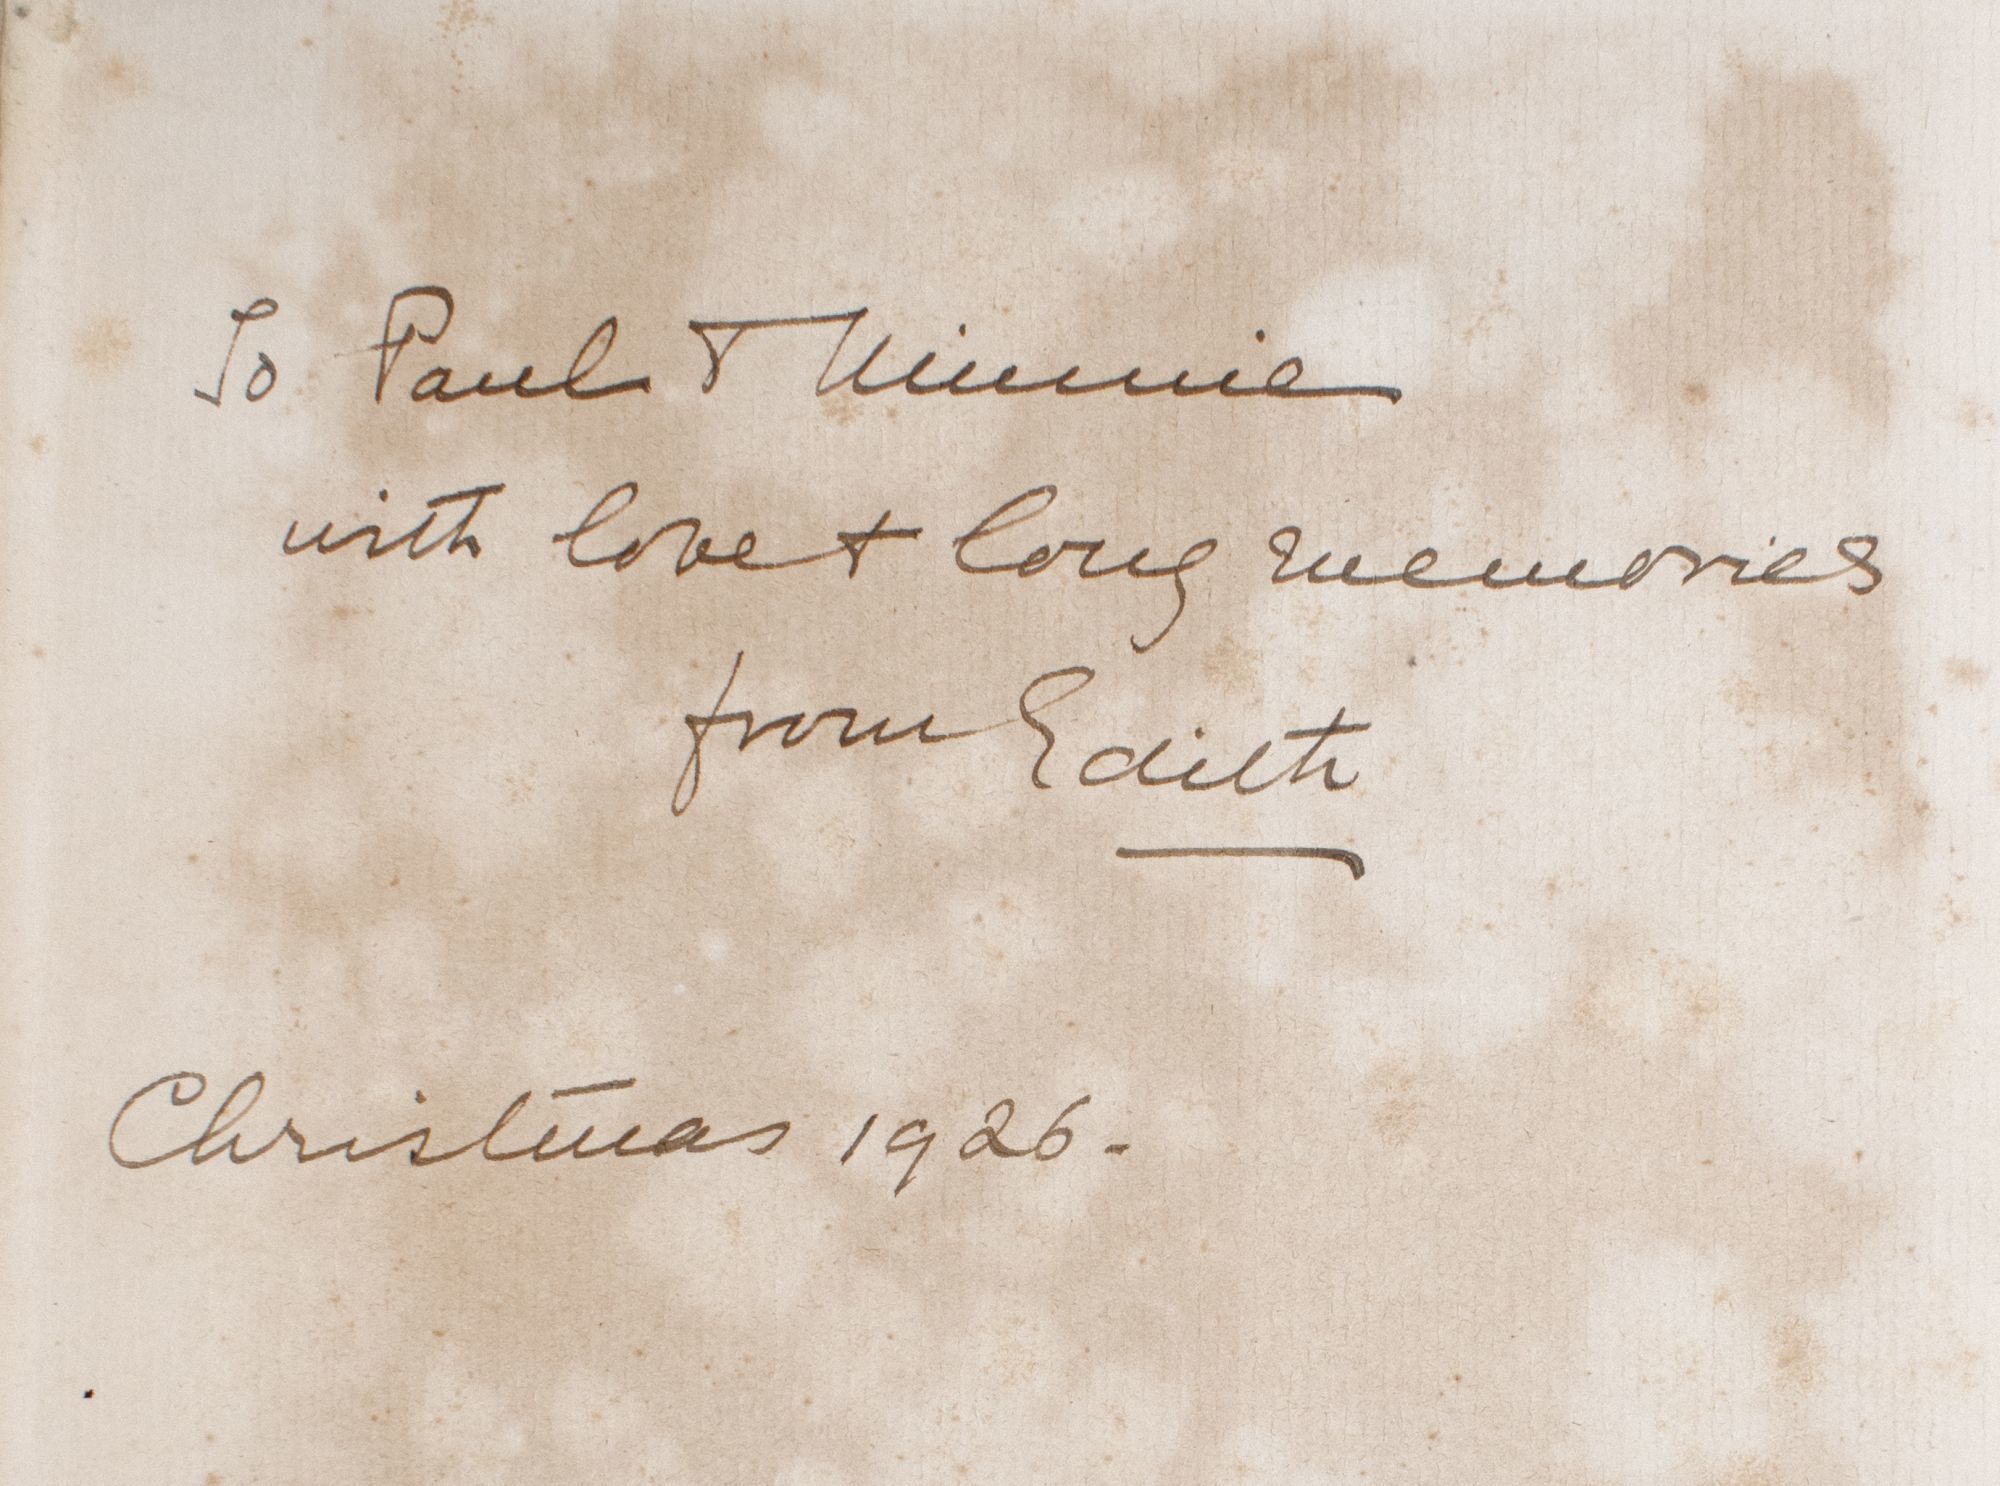 To Paul + Minnie
with love + long memories
from Edith
Christmas 1926.